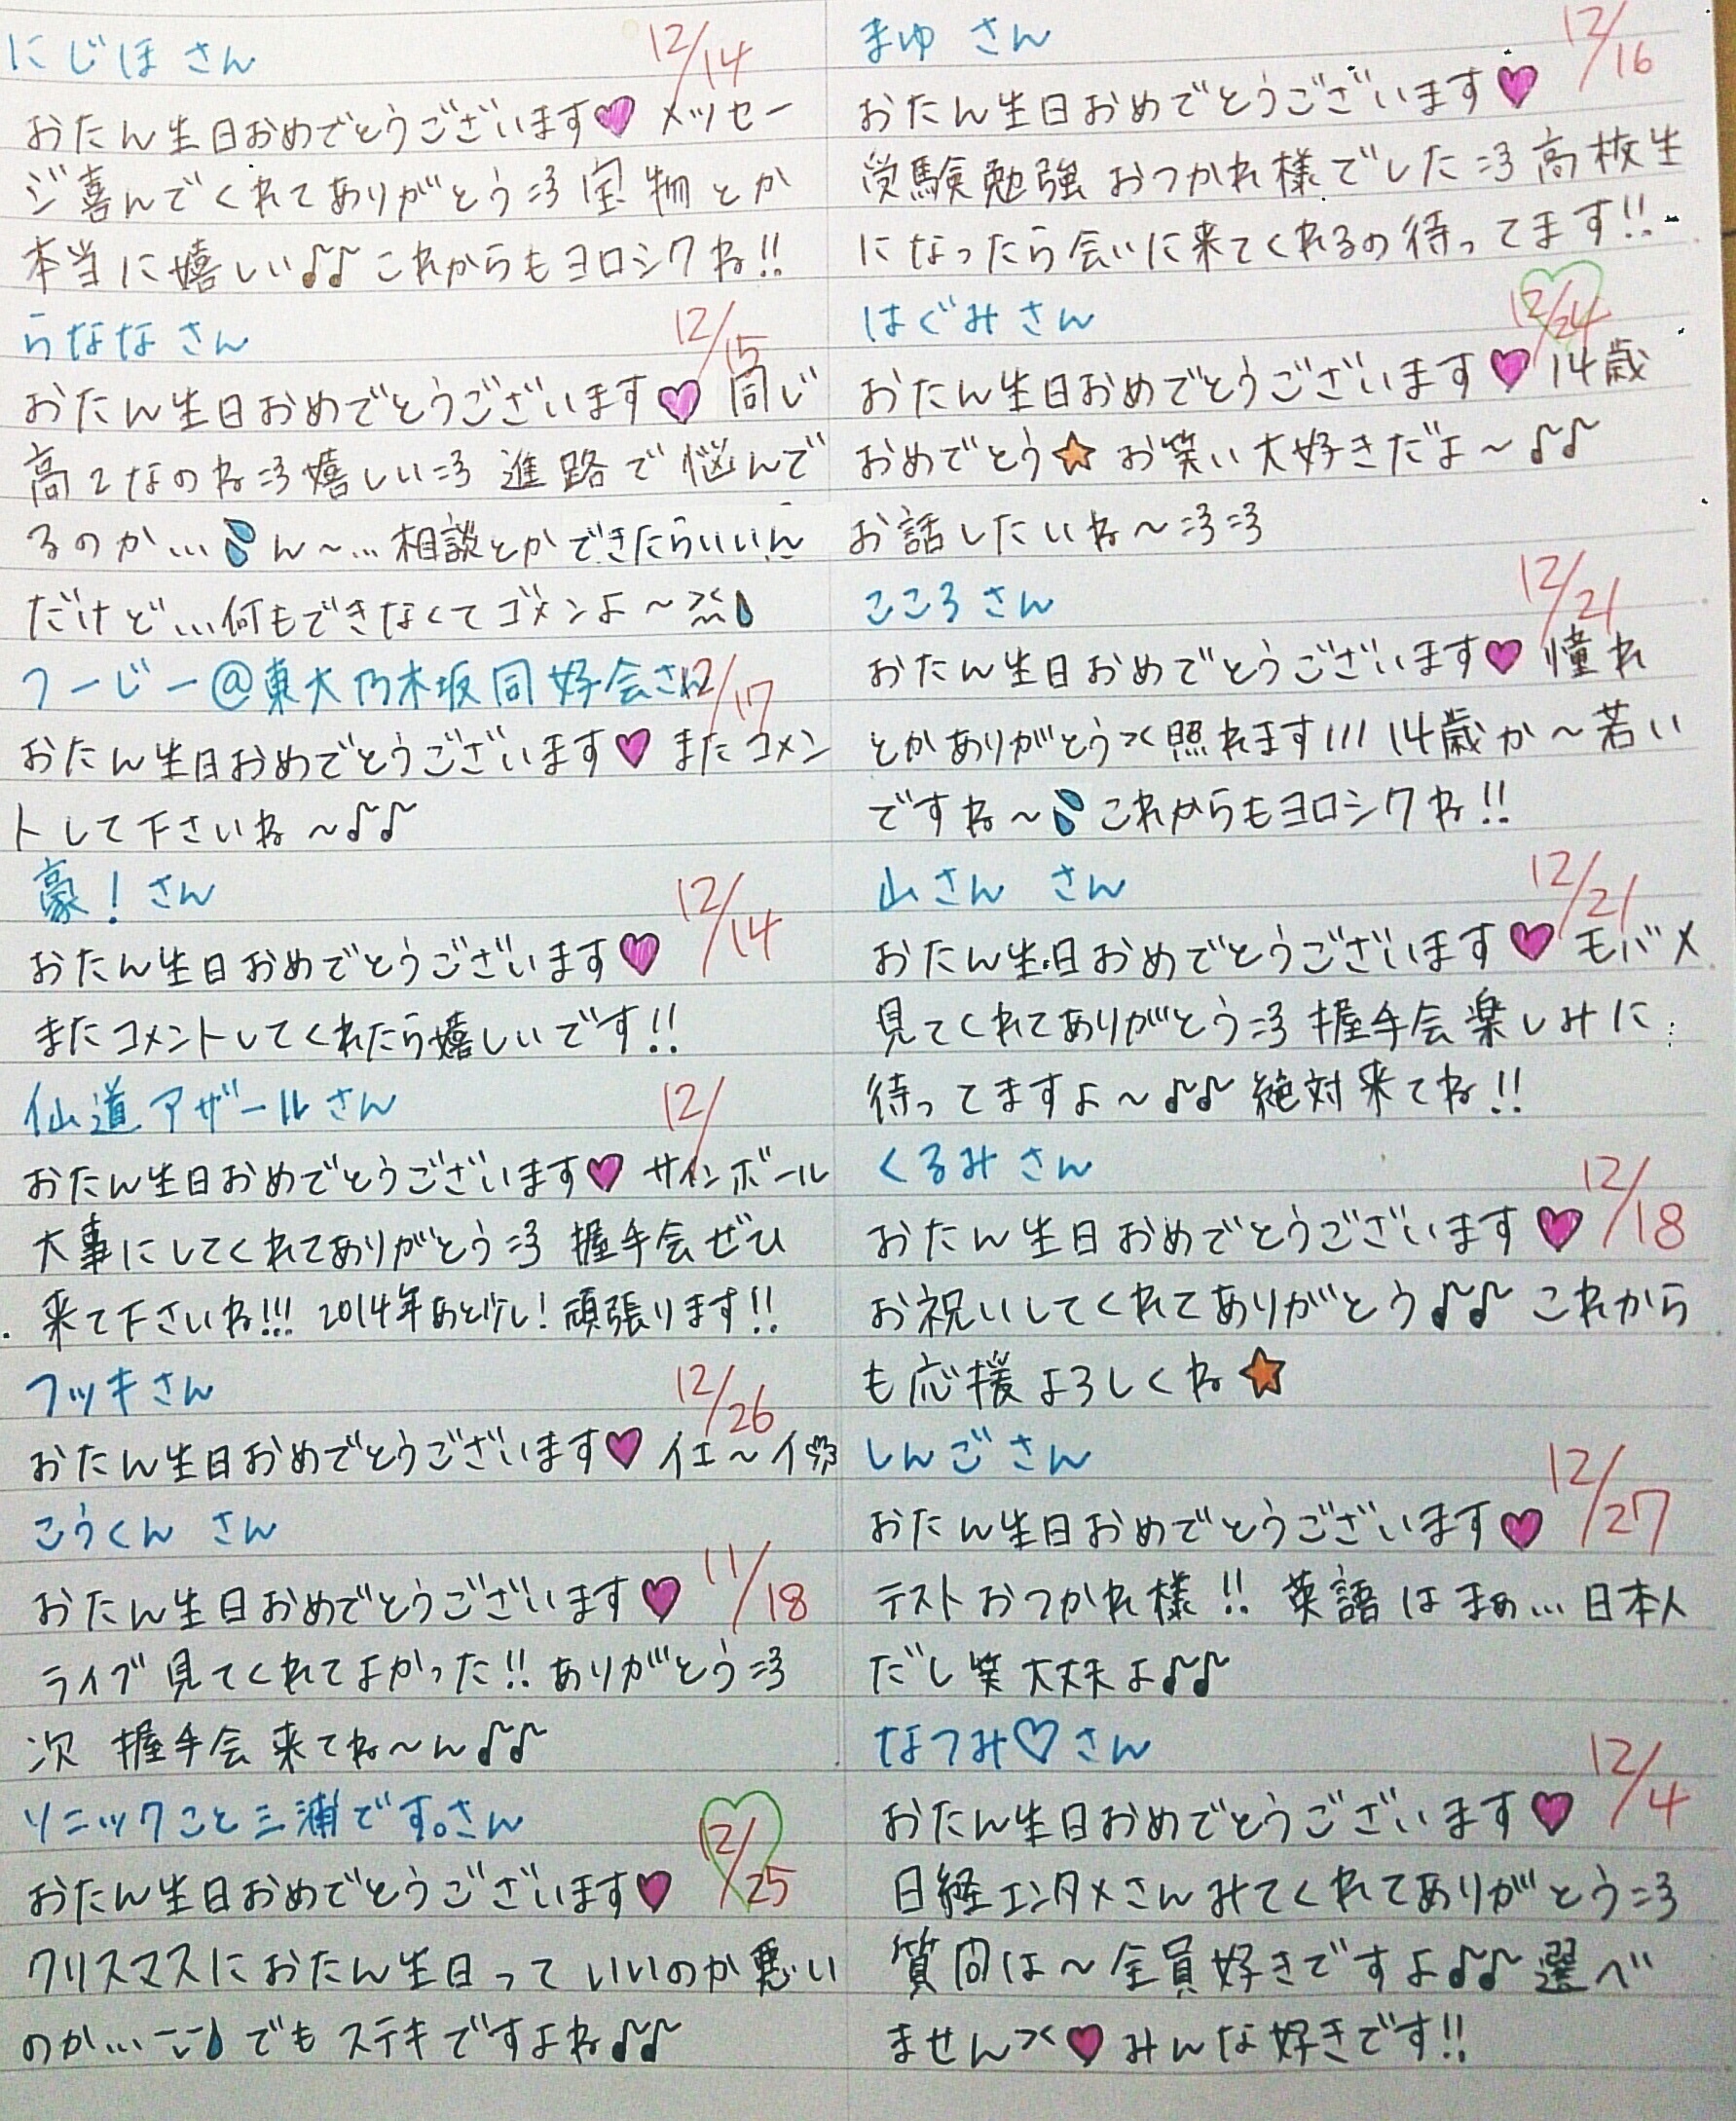 にじほさん 12/14
おたん生日おめでとうございます♥ メッセー
ジ喜んでくれてありがとう=3 宝物とか
本当に嬉しい♪♪ これからもヨロシクね!!
らななさん 12/15
おたん生日おめでとうございます♥ 同じ
高2なのね=3嬉しい=3 進路で悩んで
るのか…💦ん〜…相談とかできたらいいん
だけど…何もできなくてゴメンよ〜><💧
つーじー@東大乃木坂同好会さん 12/17
おたん生日おめでとうございます♥ またコメン
トして下さいね〜♪♪
豪!さん 12/14
おたん生日おめでとうございます♥
またコメントしてくれたら嬉しいです!!
仙道アザールさん 12/
おたん生日おめでとうございます♥ サインボール
大事にしてくれてありがとう=3 握手会ぜひ
来て下さいね!!! 2014年あと少し!頑張ります!!
フッキさん 12/26
おたん生日おめでとうございます♥ イエ〜イ
こうくん さん
おたん生日おめでとうございます♥ 11/18
ライブ見てくれてよかった!! ありがとう=3
次 握手会 来てね〜ん♪♪
ソニックこと三浦です。さん
おたん生日おめでとうございます♥ 12/25
クリスマスにおたん生日って いいのか悪い
のか… 💧でもステキですよね♪♪
まゆ さん 12/16
おたん生日おめでとうございます♥
受験勉強おつかれ様でした=3 高校生
になったら会いに来てくれるの待ってます!!
はぐみさん 12/24
おたん生日おめでとうございます♥ 14歳
おめでとう★ お笑い大好きだよ〜♪♪
お話したいね〜=3=3
こころさん 12/21
おたん生日おめでとうございます♥ 憧れ
とかありがとう>< 照れます/// 14歳か〜若い
ですね〜💦これからもヨロシクね!!
山さん さん 12/21
おたん生日おめでとうございます♥ モバメ
見てくれてありがとう=3 握手会楽しみに
待ってますよ〜♪♪ 絶対来てね!!
くるみさん 12/18
おたん生日おめでとうございます♥
お祝いしてくれてありがとう♪♪ これから
も応援よろしくね★
しんごさん 12/27
おたん生日おめでとうございます♥
テストおつかれ様!! 英語はまぁ…日本人
だし笑 大丈夫よ♪♪
なつみ♡さん 12/4
おたん生日おめでとうございます♥
日経エンタメさんみてくれてありがとう=3
質問は〜全員好きですよ♪♪ 選べ
ません><♥ みんな好きです!!